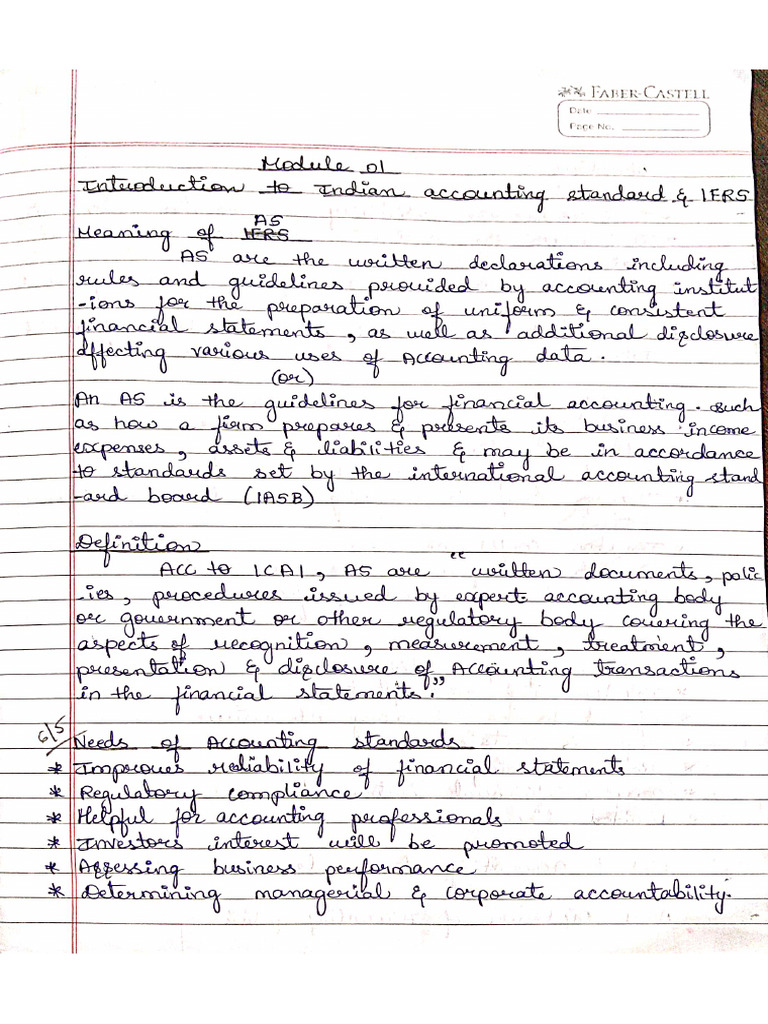 FABER-CASTELL
Date
Page No.
Module 01
Introduction to Indian accounting standard & IFRS
AS
Meaning of IFRS
AS are the written declarations including
rules and guidelines provided by accounting institut
-ions for the preparation of uniform & consistent
financial statements, as well as additional disclosure
affecting various uses of Accounting data.
(or)
An AS is the guidelines for financial accounting. such
as how a firm prepares & presents its business income
expenses, assets & liabilities & may be in accordance
to standards set by the international accounting stand
-ard board (IASB)
Definition
Acc to ICAI, AS are "written documents, polic
-ies, procedures issued by expert accounting body
or government or other regulatory body covering the
aspects of recognition, measurement, treatment,
presentation & disclosure of Accounting transactions
in the financial statements."
6/5
Needs of Accounting standards
* Improves reliability of financial statements
* Regulatory compliance
* Helpful for accounting professionals
* Investors interest will be promoted
* Assessing business performance
* Determining managerial & corporate accountability.